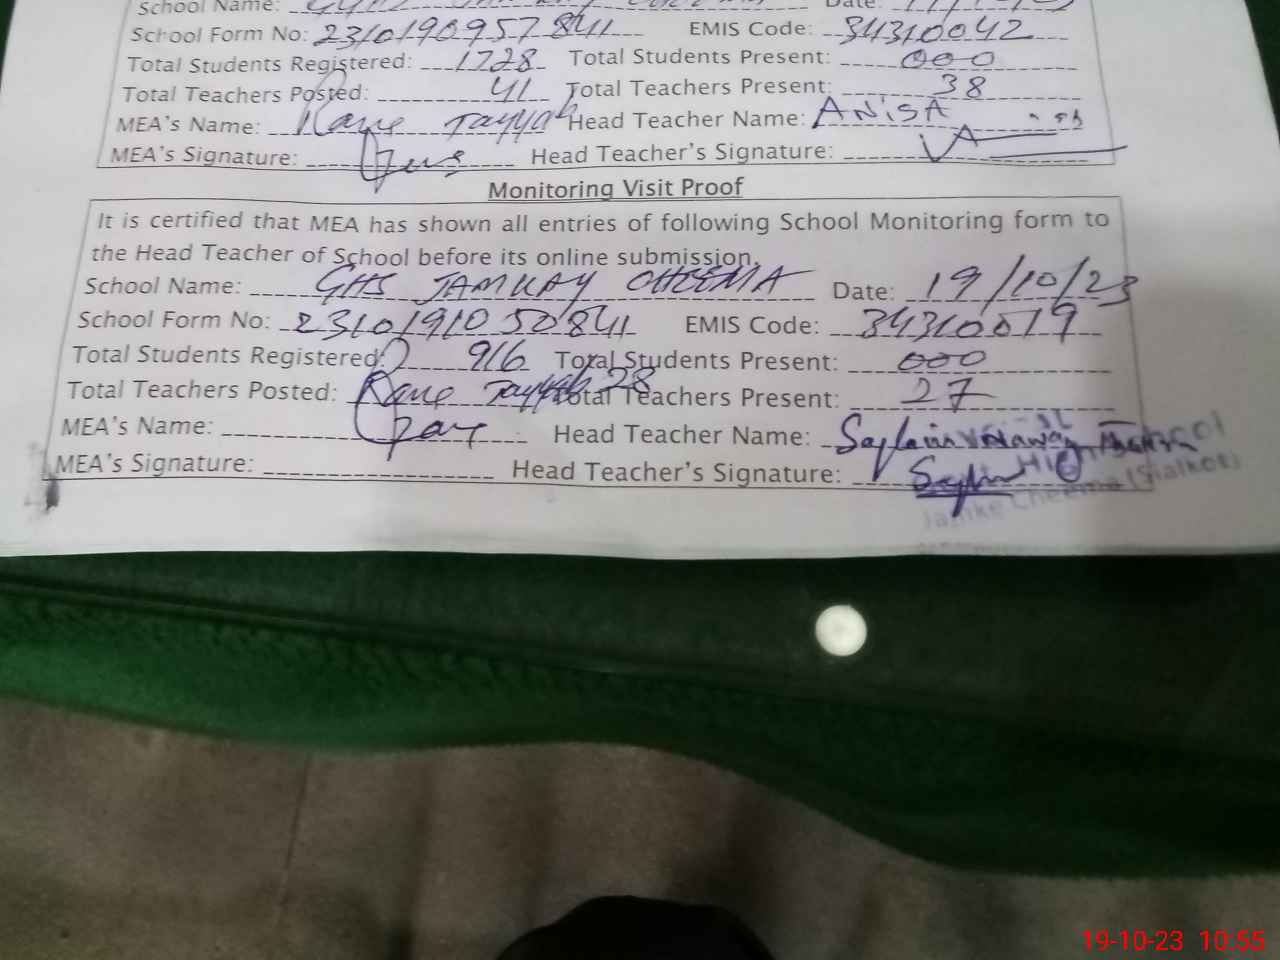 School Name: Date:
School Form No: 2310190957841 EMIS Code: 34310042
Total Students Registered: 1728 Total Students Present: 000
Total Teachers Posted: 41 Total Teachers Present: 38
MEA's Name: Rane Tayyab Head Teacher Name: ANISA
MEA's Signature: Head Teacher's Signature:
Monitoring Visit Proof
It is certified that MEA has shown all entries of following School Monitoring form to
the Head Teacher of School before its online submission.
School Name: GHS JAMKAY CHEEMA Date: 19/10/23
School Form No: 2310191050841 EMIS Code: 34310019
Total Students Registered: 916 Total Students Present: 000
Total Teachers Posted: Rane Tayyab 28 Total Teachers Present: 27
MEA's Name: Head Teacher Name:
MEA's Signature: Head Teacher's Signature:
High School
Jamke Cheema (Sialkot)
19-10-23 10:55